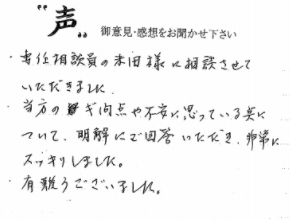 "声" 御意見・感想をお聞かせ下さい
・専任相談員の本田様に相談させて
いただきました。
・当方のギ問点や不安に思っている点に
ついて、明解にご回答いただき、非常に
スッキリしました。
・有難うございました。